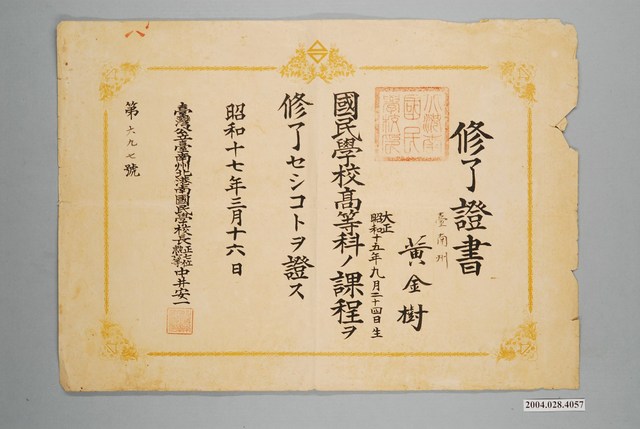 修了證書
臺南州
黃金樹
大正
昭和十五年九月二十四日生
國民學校高等科ノ課程ヲ
修了セシコトヲ證ス
昭和十七年三月十六日
臺灣公立臺南州北港南國民學校長正七位勲八等中井安一
第六九七號
2004.028.4057